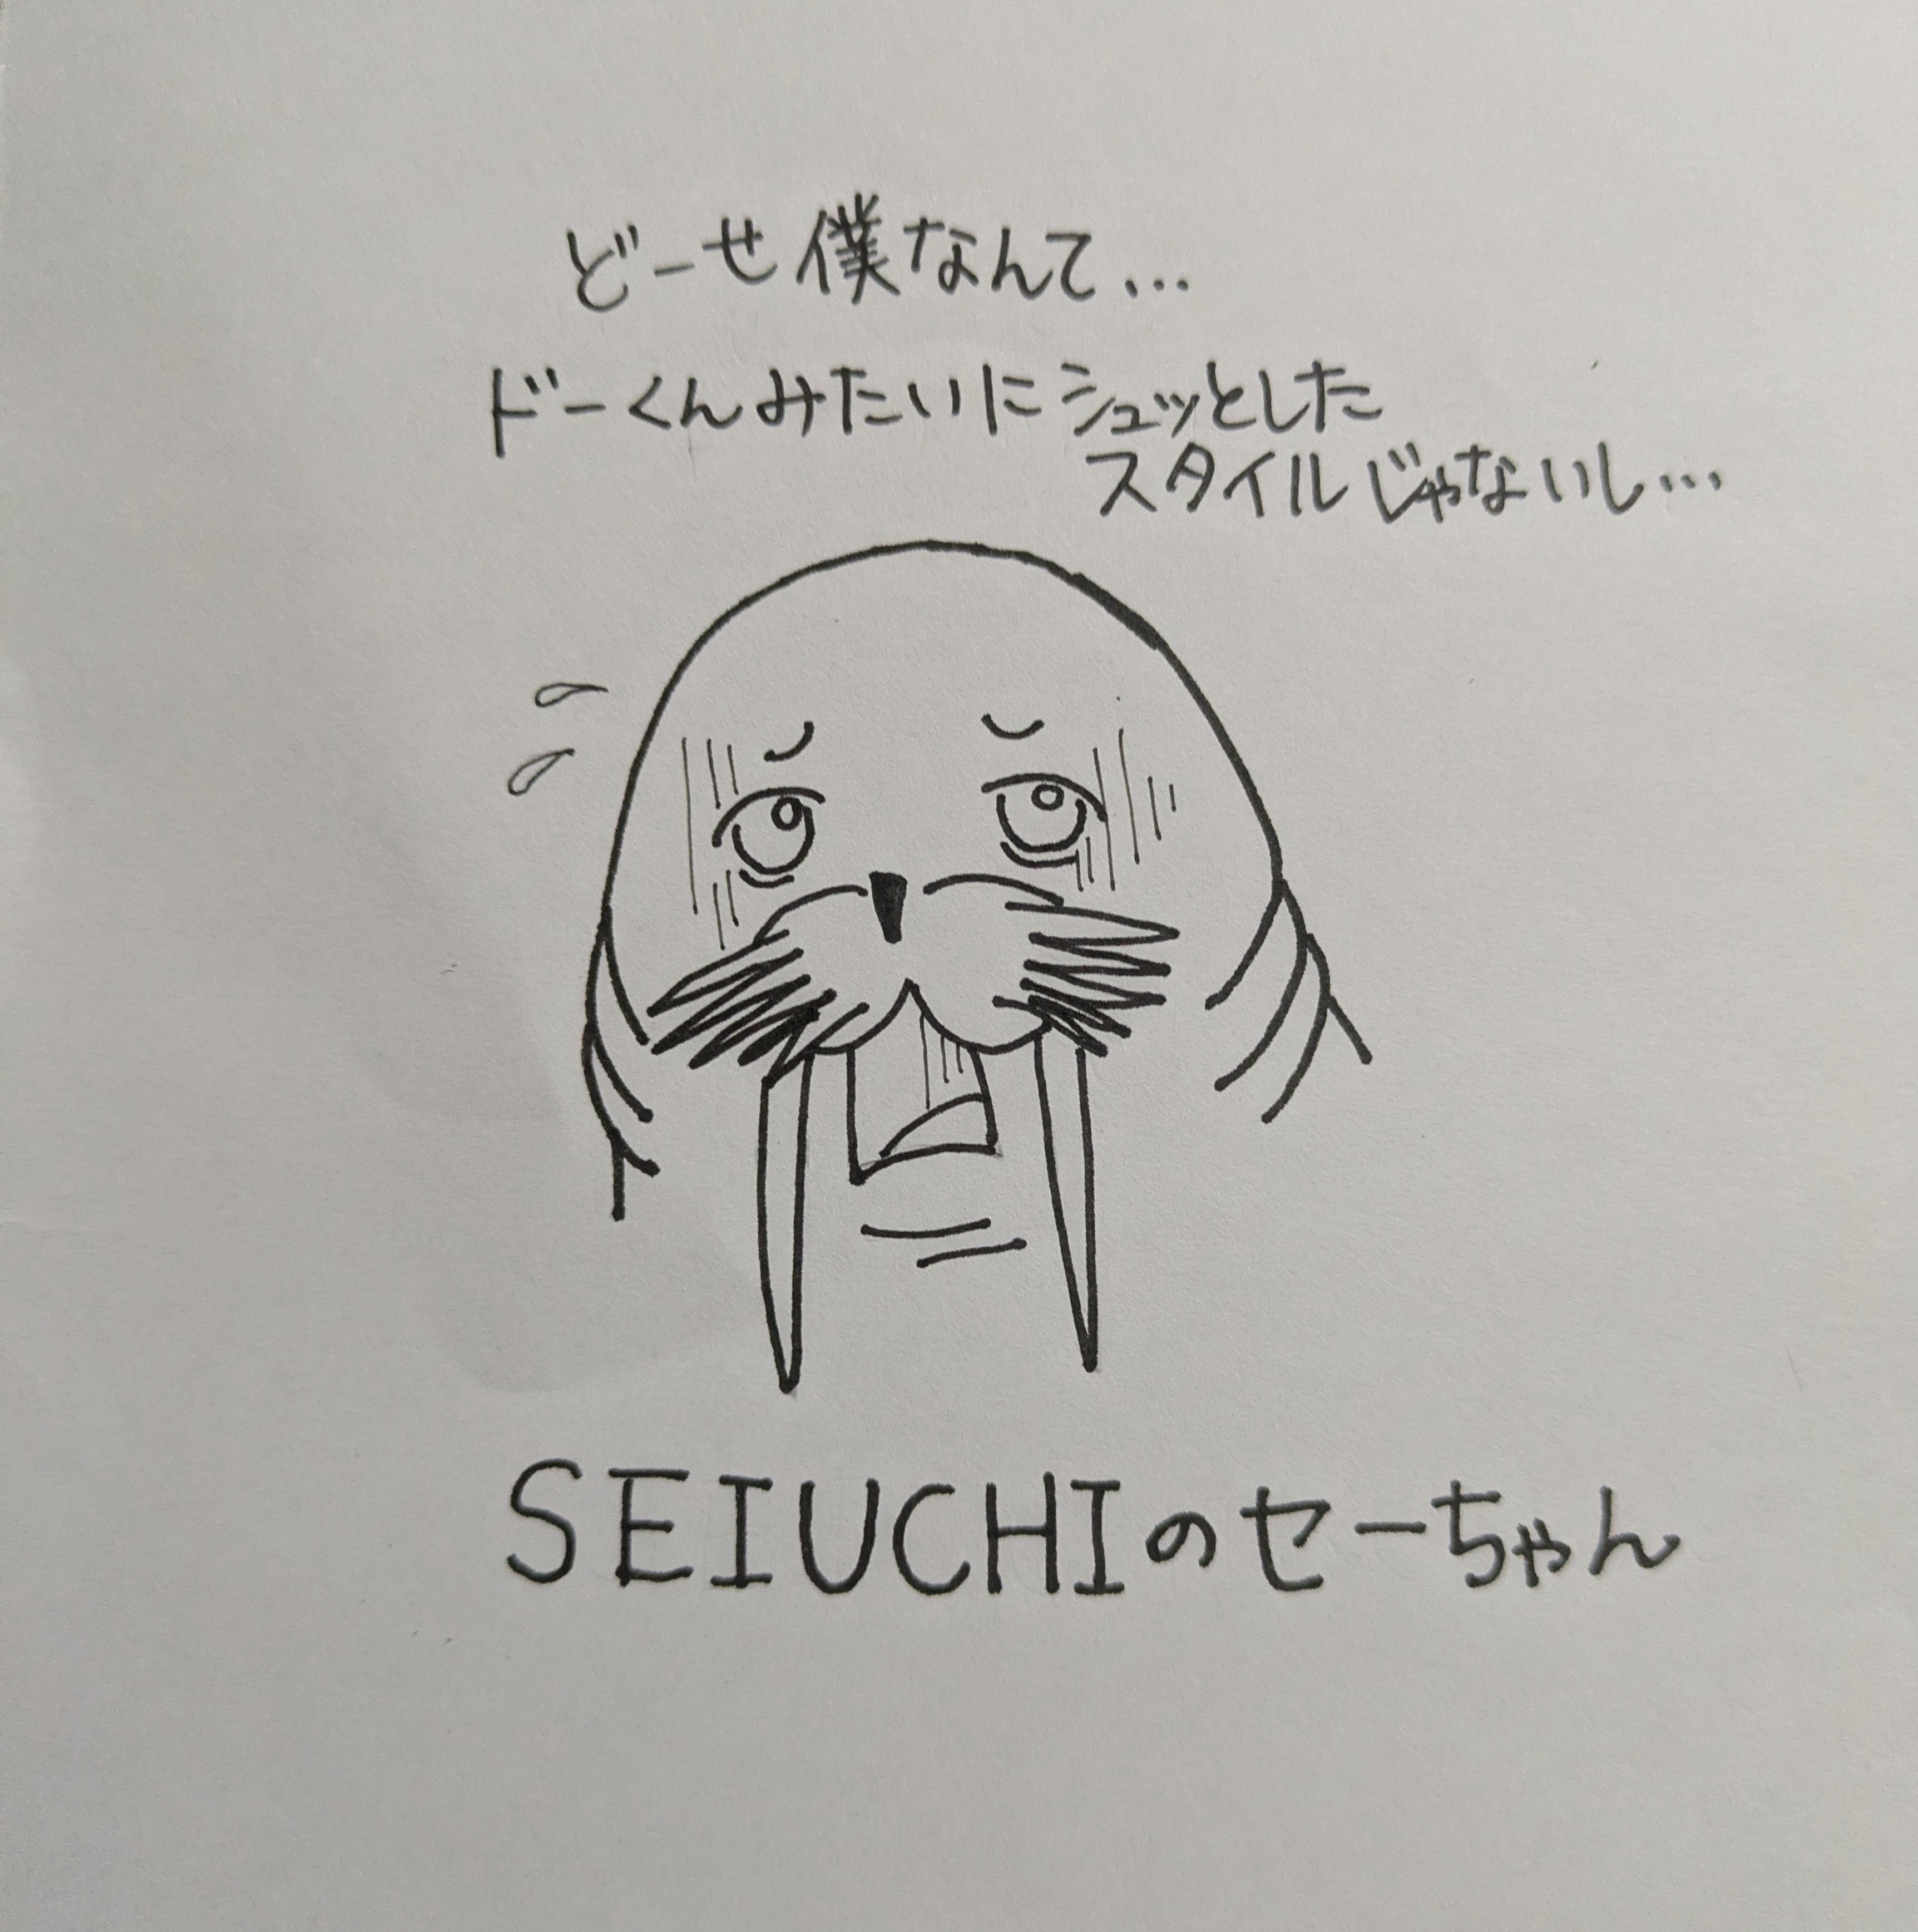 どーせ僕なんて…
ドーくんみたいにシュッとした
スタイルじゃないし…
SEIUCHIのセーちゃん